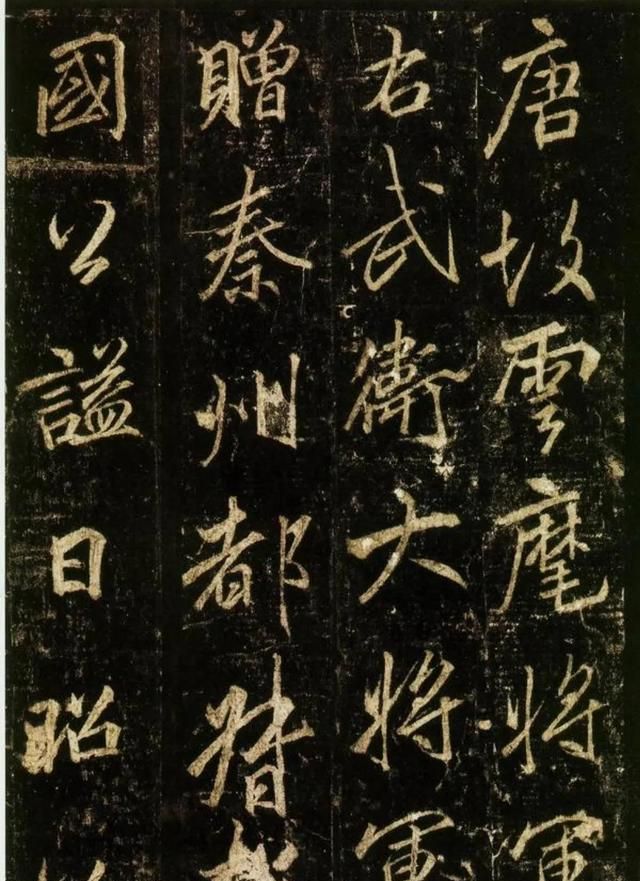 唐故雲麾將軍
右武衛大將軍
贈秦州都督
國公謚曰昭